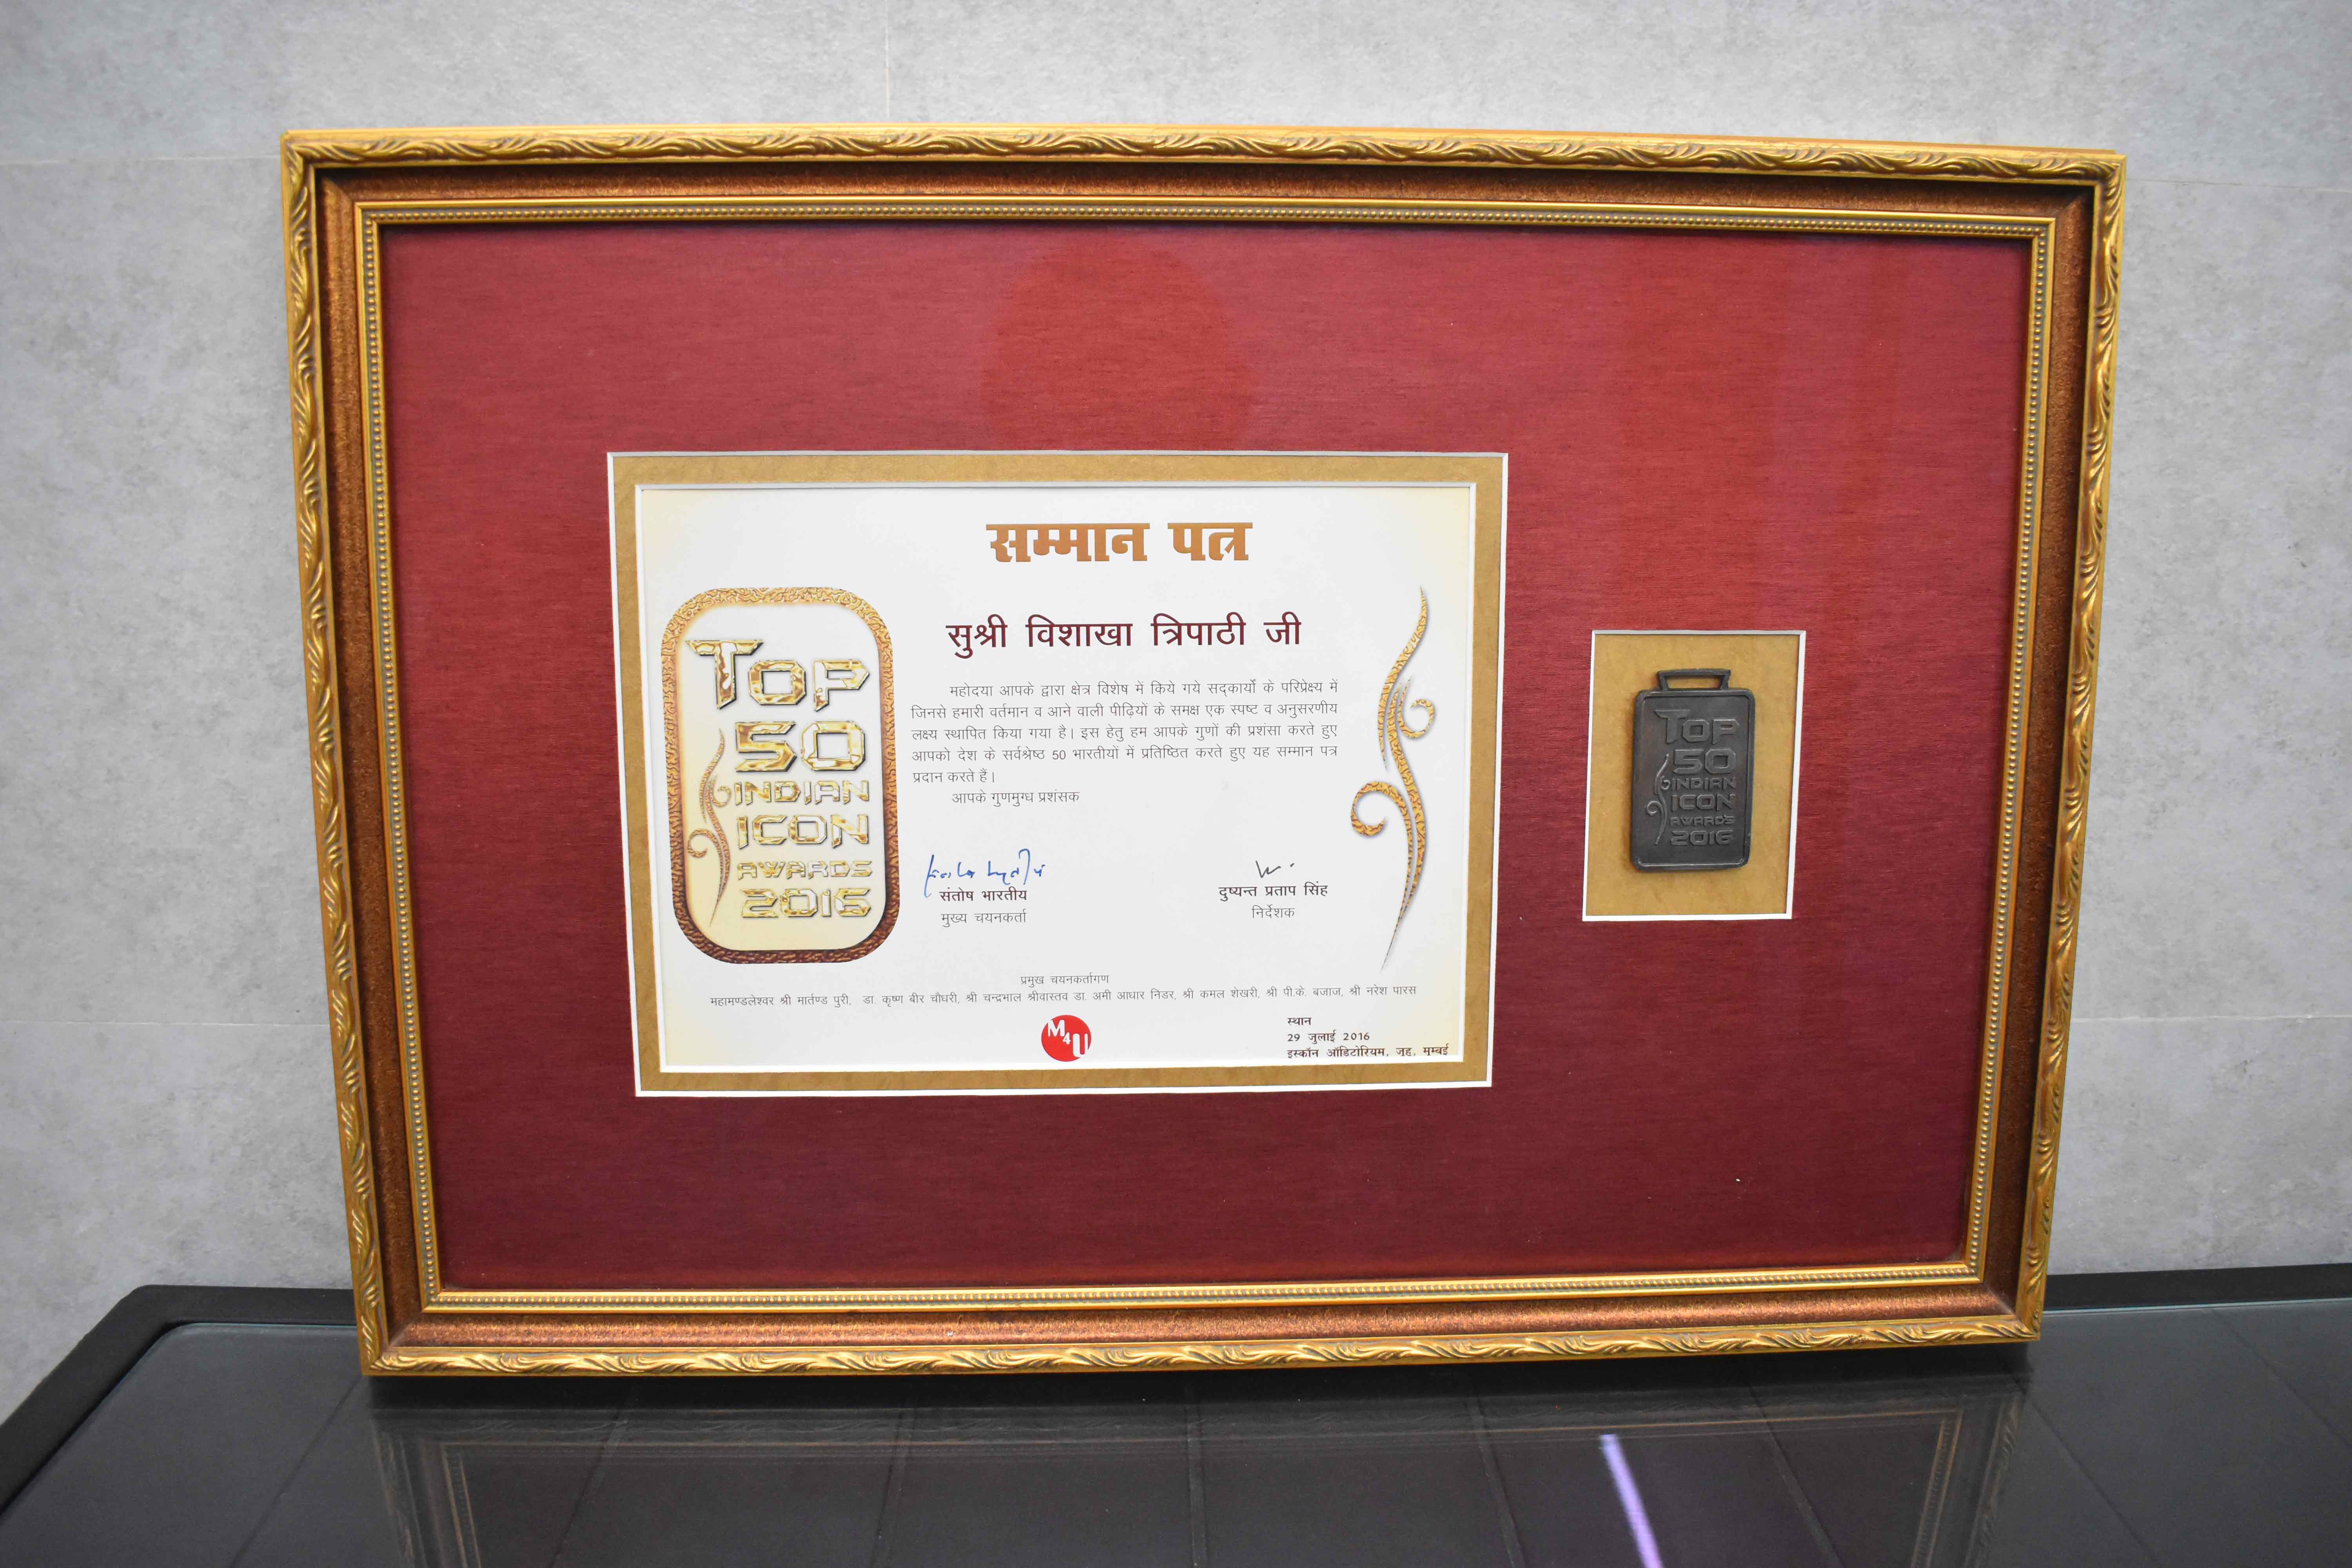 सम्मान पत्र
सुश्री विशाखा त्रिपाठी जी
महोदया आपके द्वारा क्षेत्र विशेष में किये गये सद्कार्यों के परिप्रेक्ष्य में
जिनसे हमारी वर्तमान व आने वाली पीढ़ियों के समक्ष एक स्पष्ट व अनुसरणीय
लक्ष्य स्थापित किया गया है। इस हेतु हम आपके गुणों की प्रशंसा करते हुए
आपको देश के सर्वश्रेष्ठ 50 भारतीयों में प्रतिष्ठित करते हुए यह सम्मान पत्र
प्रदान करते हैं।
आपके गुणमुग्ध प्रशंसक
संतोष भारतीय
मुख्य चयनकर्ता
दुष्यन्त प्रताप सिंह
निर्देशक
प्रमुख चयनकर्तागण
महामण्डलेश्वर श्री मार्तण्ड पुरी, डा. कृष्ण बीर चौधरी, श्री चन्द्रभाल श्रीवास्तव डा. अमी आधार निडर, श्री कमल शेखरी, श्री पी.के. बजाज, श्री नरेश पारस
M4U
स्थान
29 जुलाई 2016
इस्कॉन ऑडिटोरियम, जूह, मुम्बई
TOP
50
INDIAN
ICON
AWARDS
2016
TOP
50
INDIAN
ICON
AWARDS
2016